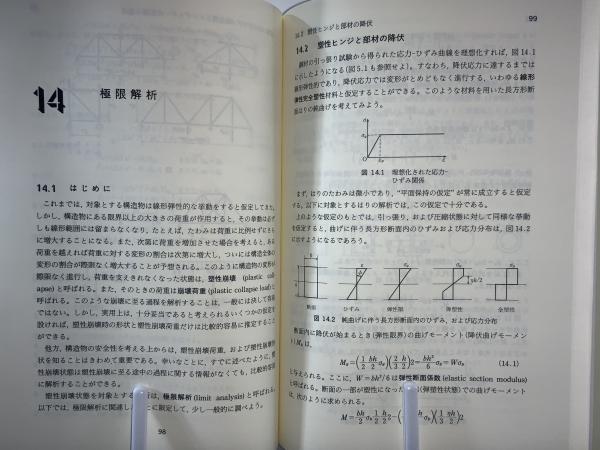 14 極限解析
14.1 はじめに
これまでは，対象とする構造物は線形弾性的な挙動をすると仮定してきた．
しかし，構造物にある限界以上の大きさの荷重が作用すると，その挙動は必ず
しも線形範囲には留まらなくなり，たとえば，たわみは荷重に比例せずにさら
に増大することになる．また，次第に荷重を増加させた場合を考えると，ある
荷重を越えれば荷重に対する変形の割合は次第に増大し，ついには構造全体の
変形の割合が際限なく増大することが予想される．このように構造物の変形が
際限なく進行し，荷重を支えきれなくなった状態は，塑性崩壊 (plastic coll-
apse) と呼ばれる．また，そのときの荷重は崩壊荷重 (plastic collapse load) と
呼ばれる．このような崩壊に至る過程を解析することは，一般には決して容易
ではない．しかし，実用上は，十分妥当であると考えられるいくつかの仮定を
設ければ，塑性崩壊時の形状と塑性崩壊荷重だけは比較的容易に推定すること
ができる．
他方，構造物の安全性を考える上からは，塑性崩壊荷重，および塑性崩壊形
状を知ることはきわめて重要である．幸いなことに，すでに述べたように，塑
性崩壊状態は塑性崩壊に至る途中の過程に関する情報がなくても，比較的容易
に解析することができる．
塑性崩壊状態を対象とする は，極限解析 (limit analysis) と呼ばれる．
以下では，極限解析に関連し に限定して，少し一般的に調べよう．
98
14.2 塑性ヒンジと部材の降伏
99
14.2 塑性ヒンジと部材の降伏
鋼材の引っ張り試験から得られた応力-ひずみ曲線を理想化すれば，図 14.1
に示したようになる (図 5.1 も参照せよ)．すなわち，降伏応力に達するまでは
線形弾性的であり，降伏応力では変形がとめどもなく進行する，いわゆる線形
弾性完全塑性材料と仮定することができる．このような材料を用いた長方形断
面はりの純曲げを考えてみよう．
図 14.1 理想化された応力-
ひずみ関係
まず，はりのたわみは微小であり，“平面保持の仮定”が常に成立すると仮定
する．以下に対象とするはりの解析では，この仮定で十分である．
上のような仮定のもとでは，引っ張り，および圧縮状態に対して同様な挙動
を仮定すると，曲げに伴う長方形断面内のひずみおよび応力分布は，図 14.2
に示すようになるであろう．
断面 ひずみ 弾性限 弾塑性 全塑性
図 14.2 純曲げに伴う長方形断面内のひずみ，および応力分布
断面内に降伏が始まるとき (弾性限界) の曲げモーメント (降伏曲げモーメン
ト) Mₑは，
と与えられる．ここに，W＝bh²/6 は弾性断面係数 (elastic section modulus)
と呼ばれる．断面の一部が塑性になった (弾塑性状態) での曲げモーメント
は，次のように求められる．